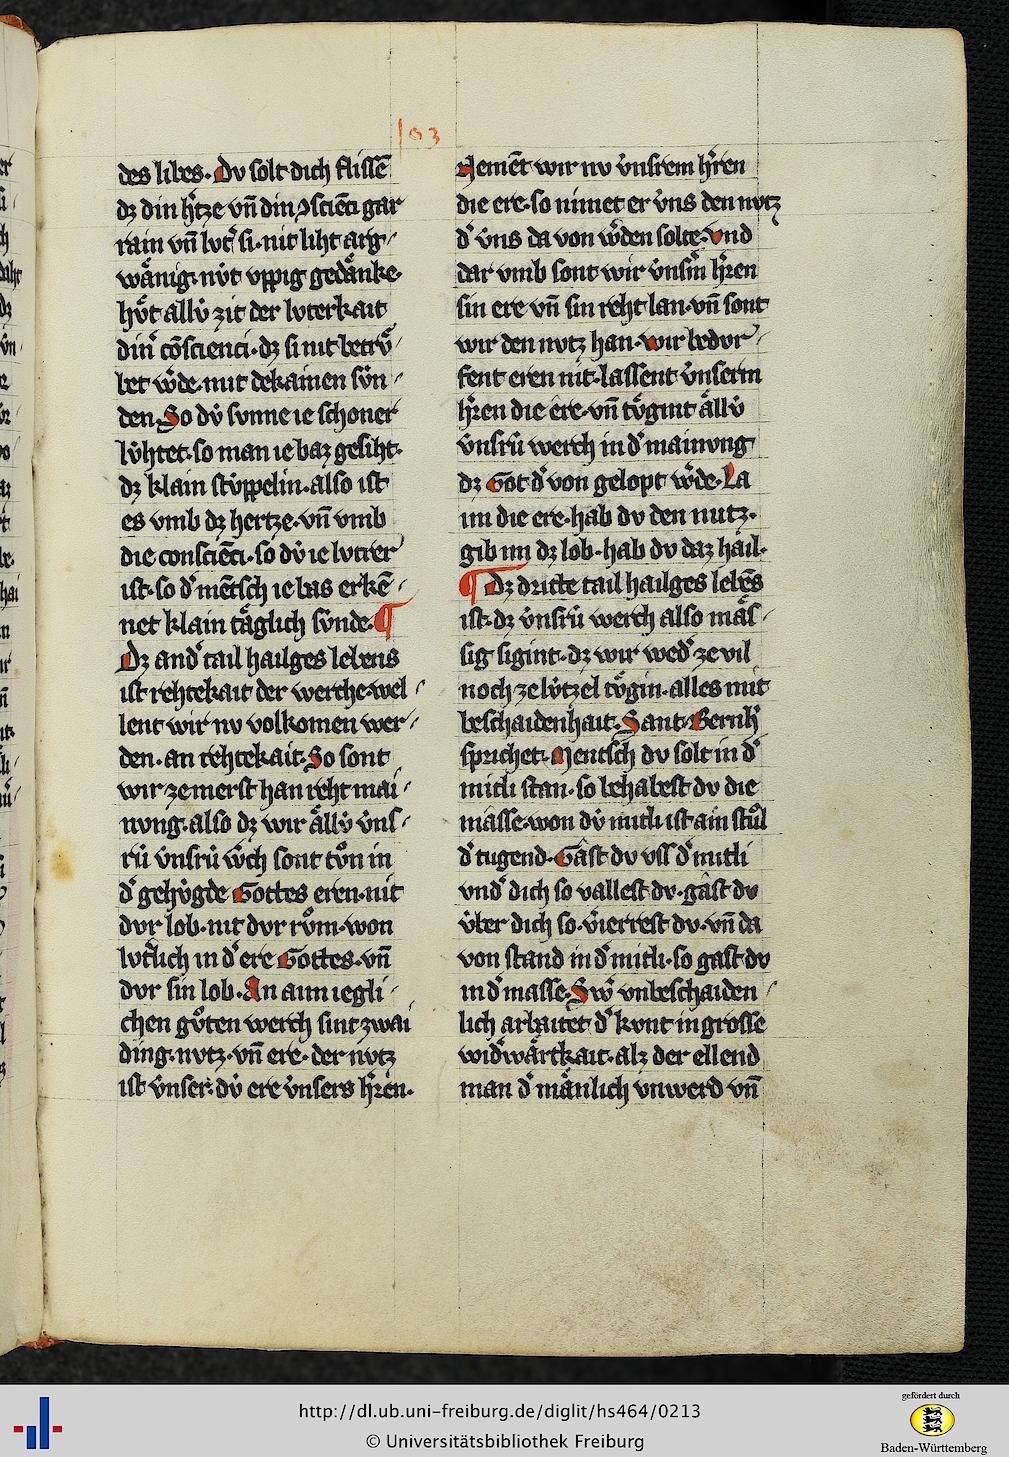 103
des libes. Du solt dich flissē
dz din h'tze vn̄ din ↄsciēci gar
rain vn̄ lvt' si. nit liht arg-
wånig. nv́t vppig gedånke.
hv́t allv́ zit der lvterkait
din' cōscienci. dz si nit betrv̊-
bet w'de. mit dekainen sv́n-
den. So dv́ svnne ie schoner
lv́htet. so man ie baz gesiht.
dz klain stv́ppelin. also ist
es vmb dz hertze. vn̄ vmb
die consciēci. so dv́ ie lvtter
ist. so d' mētsch ie bas erkē-
net klain tåglich sv́nde. ¶
Dz and' tail hailges lebens
ist rehtekait der werche. wel-
lent wir nv volkomen wer-
den. an rehtekait. So sont
wir ze merst han reht mai-
nvng. also dz wir ållv́ v́ns-
rv́ v́nsrv́ w'ch sont tv̊n in
d' gehv́gde Gottes eren. nit
dvr lob. nit dvr rv̊m. won
lvt'lich in d' ere Gottes. vn̄
dvr sin lob. An aim iegli-
chen gv̊ten werch sint zwai
ding. nvtz. vn̄ ere. der nvtz
ist v́nser. dv́ ere v́nsers h'ren.
Nemēt wir nv v́nsrem h'ren
die ere. so nimet er v́ns den nvtz
d' v́ns da von w'den solte. vnd
dar vmb sont wir v́nsm̄ h'ren
sin ere vn̄ sin reht lan. vn̄ sont
wir den nvtz han. wir bedvr-
fent eren nit. lassent v́nserm
h'ren die ere. vn̄ tv́gint ållv́
v́nsrv́ werch in d' mainvng
dz Got d' von gelopt w'de. La
im die ere. hab dv den nutz.
gib im dz lob. hab dv daz hail.
¶ Dz dritte tail hailges lebēs
ist. dz v́nsrv́ werch also mås-
sig sigint. dz wir wed' ze vil
noch ze lv́tzel tv́gin. alles mit
beschaidenhait. Sant Bernh'
sprichet. Mentsch dv solt in d'
mitli stan. so behabest dv die
masse. won dv́ mitli ist ain stv̊l
d' tugend. Gast dv vss d' mitli
vnd' dich so vallest dv. gast dv
v́ber dich so. v́ierrest dv. vn̄ da
von stand in d' mitli. so gast dv
in d' masse. Sw' vnbeschaiden-
lich arbaitet d' kvnt in grosse
wid'wårtkait. alz der ellend
man d' månlich vnwerd vn̄
http://dl.ub.uni-freiburg.de/diglit/hs464/0213
© Universitätsbibliothek Freiburg
gefördert durch
Baden-Württemberg